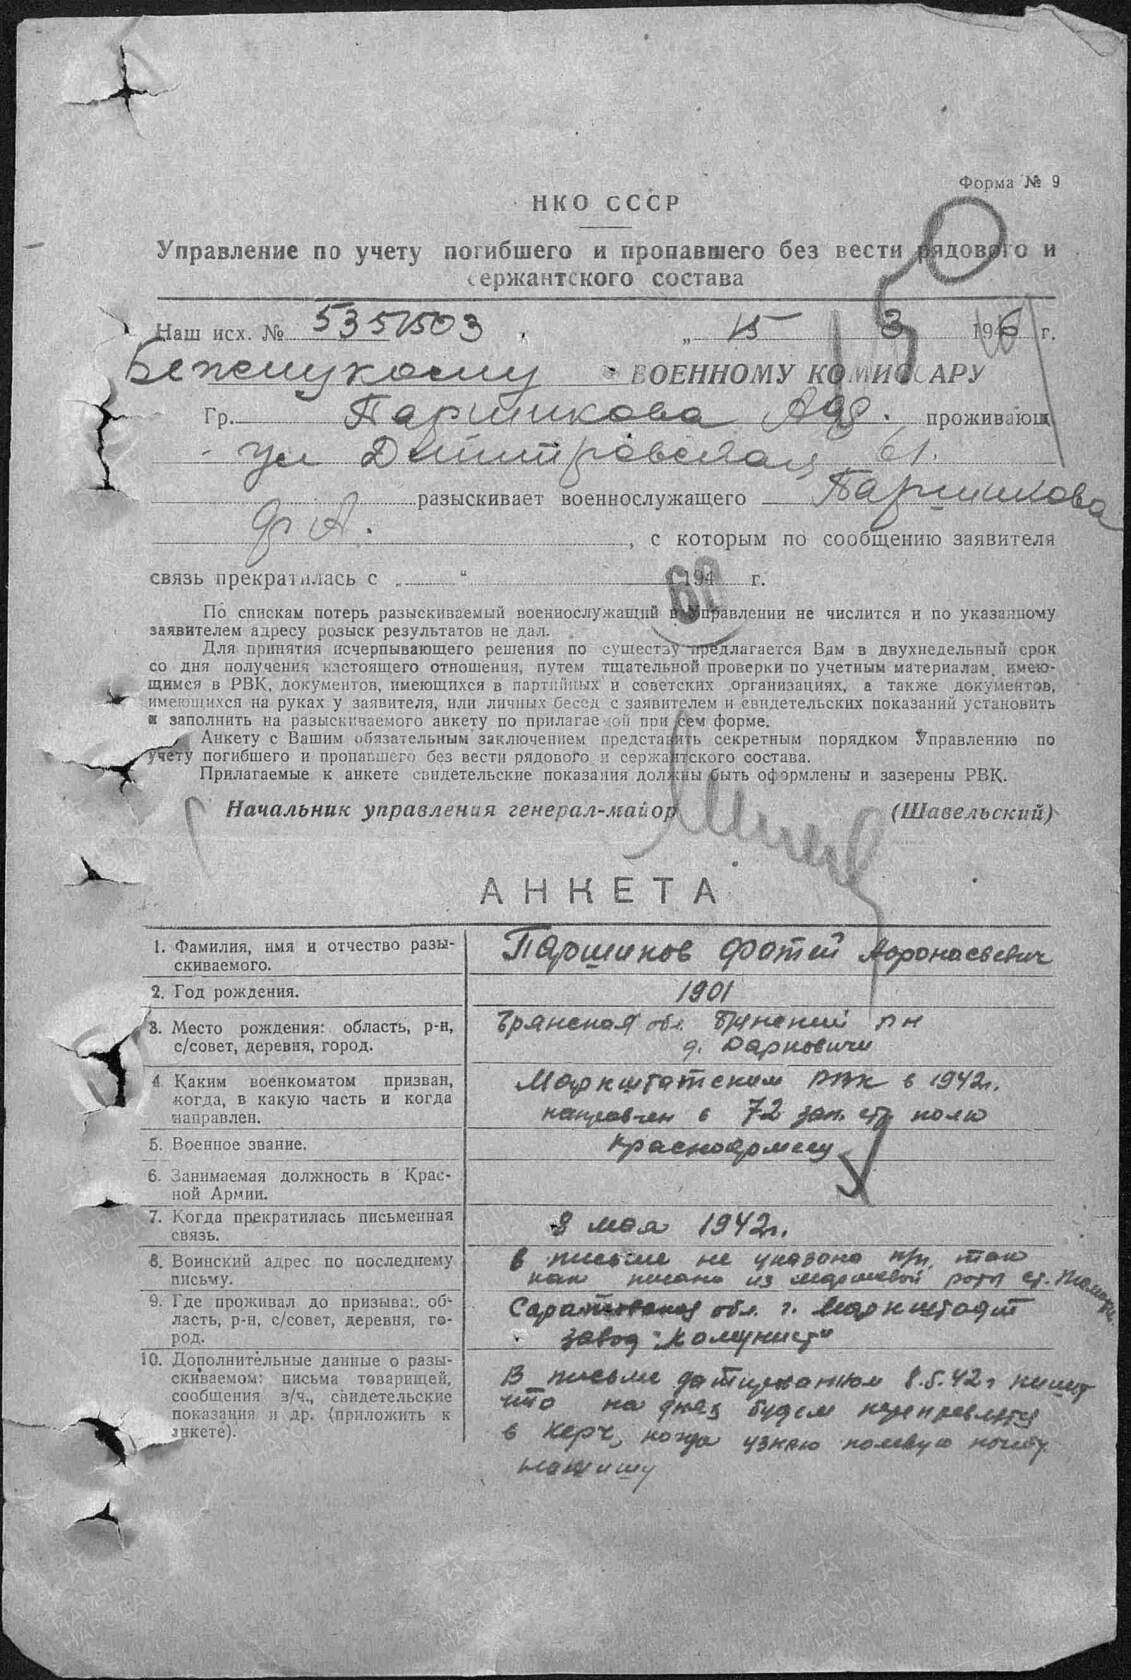 Форма № 9
НКО СССР
Управление по учету погибшего и пропавшего без вести рядового и
сержантского состава
Наш исх. № 5351503 „ 15 3 1946 г.
Бежицкому ВОЕННОМУ КОМИССАРУ
Гр. Паршикова проживающ
ул Димитровская 61.
разыскивает военнослужащего Паршикова
Ф А. , с которым по сообщению заявителя
связь прекратилась с „ “ 194 г.
60
По спискам потерь разыскиваемый военнослужащий в Управлении не числится и по указанному
заявителем адресу розыск результатов не дал.
Для принятия исчерпывающего решения по существу предлагается Вам в двухнедельный срок
со дня получения настоящего отношения, путем тщательной проверки по учетным материалам, имею-
щимся в РВК, документов, имеющихся в партийных и советских организациях, а также документов,
имеющихся на руках у заявителя, или личных бесед с заявителем и свидетельских показаний установить
и заполнить на разыскиваемого анкету по прилагаемой при сем форме.
Анкету с Вашим обязательным заключением представить секретным порядком Управлению по
учету погибшего и пропавшего без вести рядового и сержантского состава.
Прилагаемые к анкете свидетельские показания должны быть оформлены и заверены РВК.
Начальник управления генерал-майор (Шавельский)
АНКЕТА
1. Фамилия, имя и отчество разы-
скиваемого.
Паршиков Фотей Афронаевич
2. Год рождения.
1901
3. Место рождения: область, р-н,
с/совет, деревня, город.
Брянская обл. Брянский р-н
д. Дарковичи
4. Каким военкоматом призван,
когда, в какую часть и когда
направлен.
Марксштатским РВК в 1942г.
направлен в 72 зап. стр полк
5. Военное звание.
Красноармеец
6. Занимаемая должность в Крас-
ной Армии.
7. Когда прекратилась письменная
связь.
8 мая 1942г.
8. Воинский адрес по последнему
письму.
в письме не указано п/п, так
как писано из маршевой роты ст.
9. Где проживал до призыва: об-
ласть, р-н, с/совет, деревня, го-
род.
Саратовская обл. г. Марксштадт
завод "Комунист"
10. Дополнительные данные о разы-
скиваемом: письма товарищей,
сообщения в/ч., свидетельские
показания и др. (приложить к
анкете).
В письме датированном 8.5.42г пишет
что на днях будем
в Керч, когда узнаю полевую почту
напишу